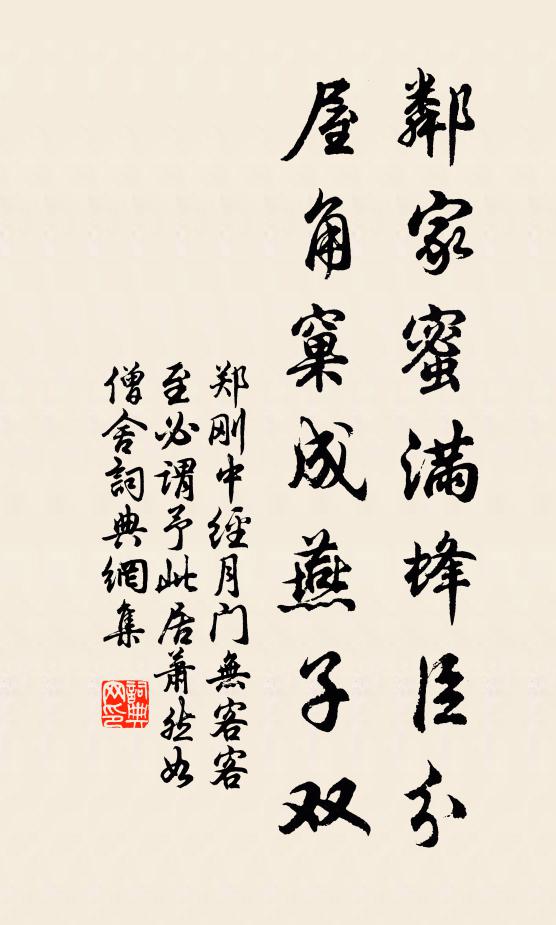 鄰家蜜滿蜂臣分
屋角窠成燕子双
郑刚中經月门無客客
至必谓予此居萧然如
僧舍詞典網集
詞典网印